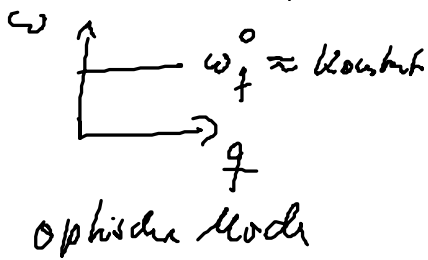 ω
ω_q^o ≈ konstant
q
optische Mode